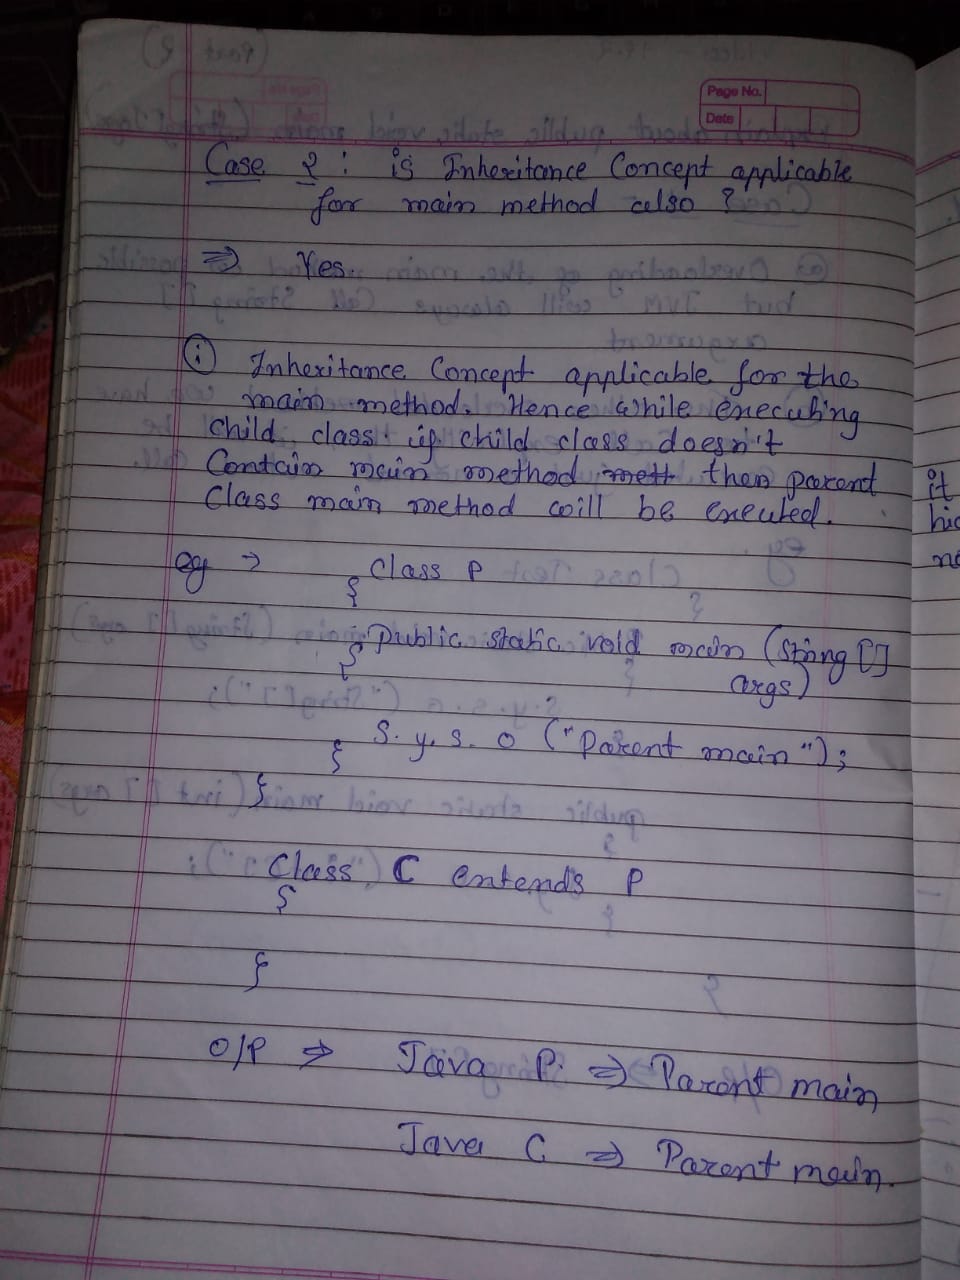 Page No.
Date
Case 2 : is Inheritance Concept applicable
for main method also ?
⇒ Yes.
(i) Inheritance Concept applicable for the
main method. Hence while executing
child class. if child class doesn't
Contain main method mett then parent
Class main method will be exeuted.
eg → Class P
{
public static void main (String []
{ args)
S. y. s. o ("Parent main");
}
}
Class C extends P
{
}
O/P ⇒ Java P. ⇒ Parent main
Java C ⇒ Parent main.
it